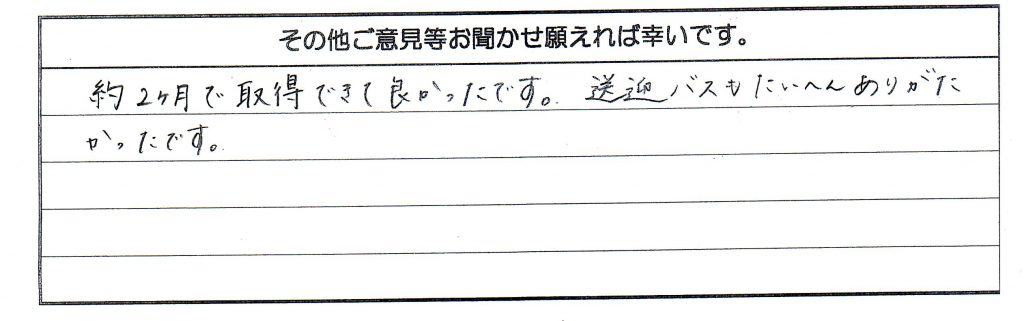 その他ご意見等お聞かせ願えれば幸いです。
約2ヶ月で取得できて良かったです。送迎バスもたいへんありがた
かったです。